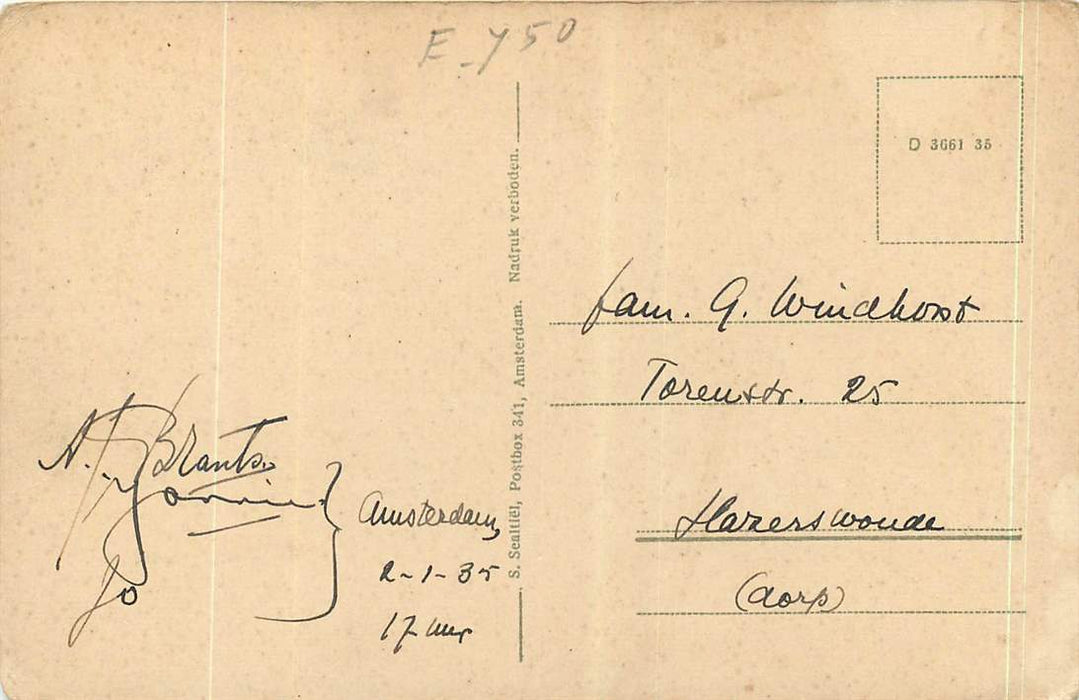 E - 750
D 3661 35
S. Sealtiël, Postbox 341, Amsterdam. Nadruk verboden.
fam. G. Windhorst
Torenstr. 25
Hazerswoude
(dorp)
A. Brants.
Jo
Amsterdam,
2-1-35
17 uur